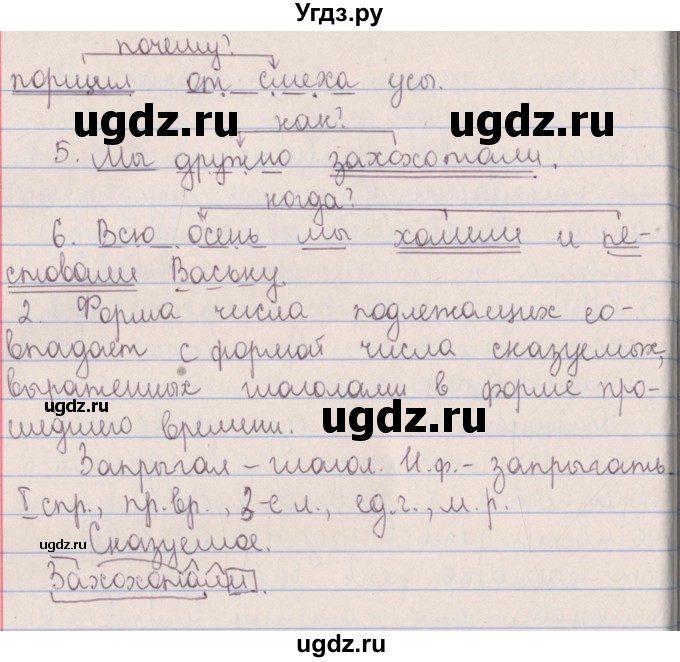 Угдз.ру
почему?
порщил от смеха усы.
ugdz.ru ugdz.ru
как?
5. Мы дружно захохотали.
когда?
6. Всю осень мы холили и пе-
стовали Ваську.
2. Форма числа подлежащих со-
впадает с формой числа сказуемых,
выраженных глаголами в форме про-
ugdz.ru ugdz.ru
шедшего времени.
Запрыгал – глагол. Н.ф. – запрыгать.
I спр., пр.вр., 3-е л., ед.ч., м.р.
ugdz.ru Сказуемое.
Захохотали.
ugdz.ru